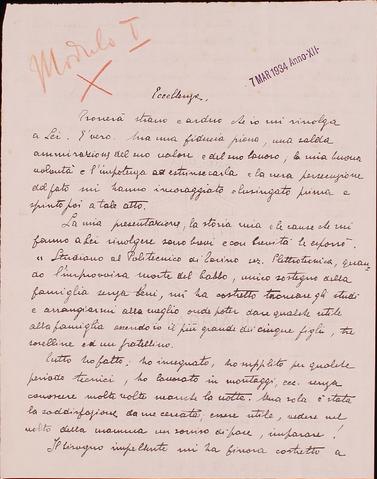 Modulo I
7 MAR 1934 Anno XII
Eccellenza,
Troverà strano e arduo che io mi rivolga
a Lei. È vero. Ma una fiducia piena, una salda
ammirazione del suo valore e del suo lavoro, la mia buona
volontà e l'impotenza ad estrinsecarla e la vera persecuzione
del fato mi hanno incoraggiato e lusingato prima e
spinto poi a tale atto.
La mia presentazione, la storia mia e le cause che mi
fanno a Lei rivolgere sono brevi e con brevità le esporrò.
" Studiavo al Politecnico di Torino sez. Elettrotecnica, quan-
do l'improvvisa morte del babbo, unico sostegno della
famiglia senza beni, mi ha costretto troncare gli studi
e arrangiarmi alla meglio onde poter dare qualche utile
alla famiglia essendo io il più grande dei cinque figli, tre
sorelline ed un fratellino.
Tutto ho fatto: ho insegnato, ho supplito per qualche
periodo tecnici, ho lavorato in montaggi, ecc. senza
conoscere molte volte manche la notte. Una sola è stata
la soddisfazione da me cercata, essere utile, vedere nel
volto della mamma un sorriso di pace, imparare!
Il bisogno impellente mi ha finora costretto a